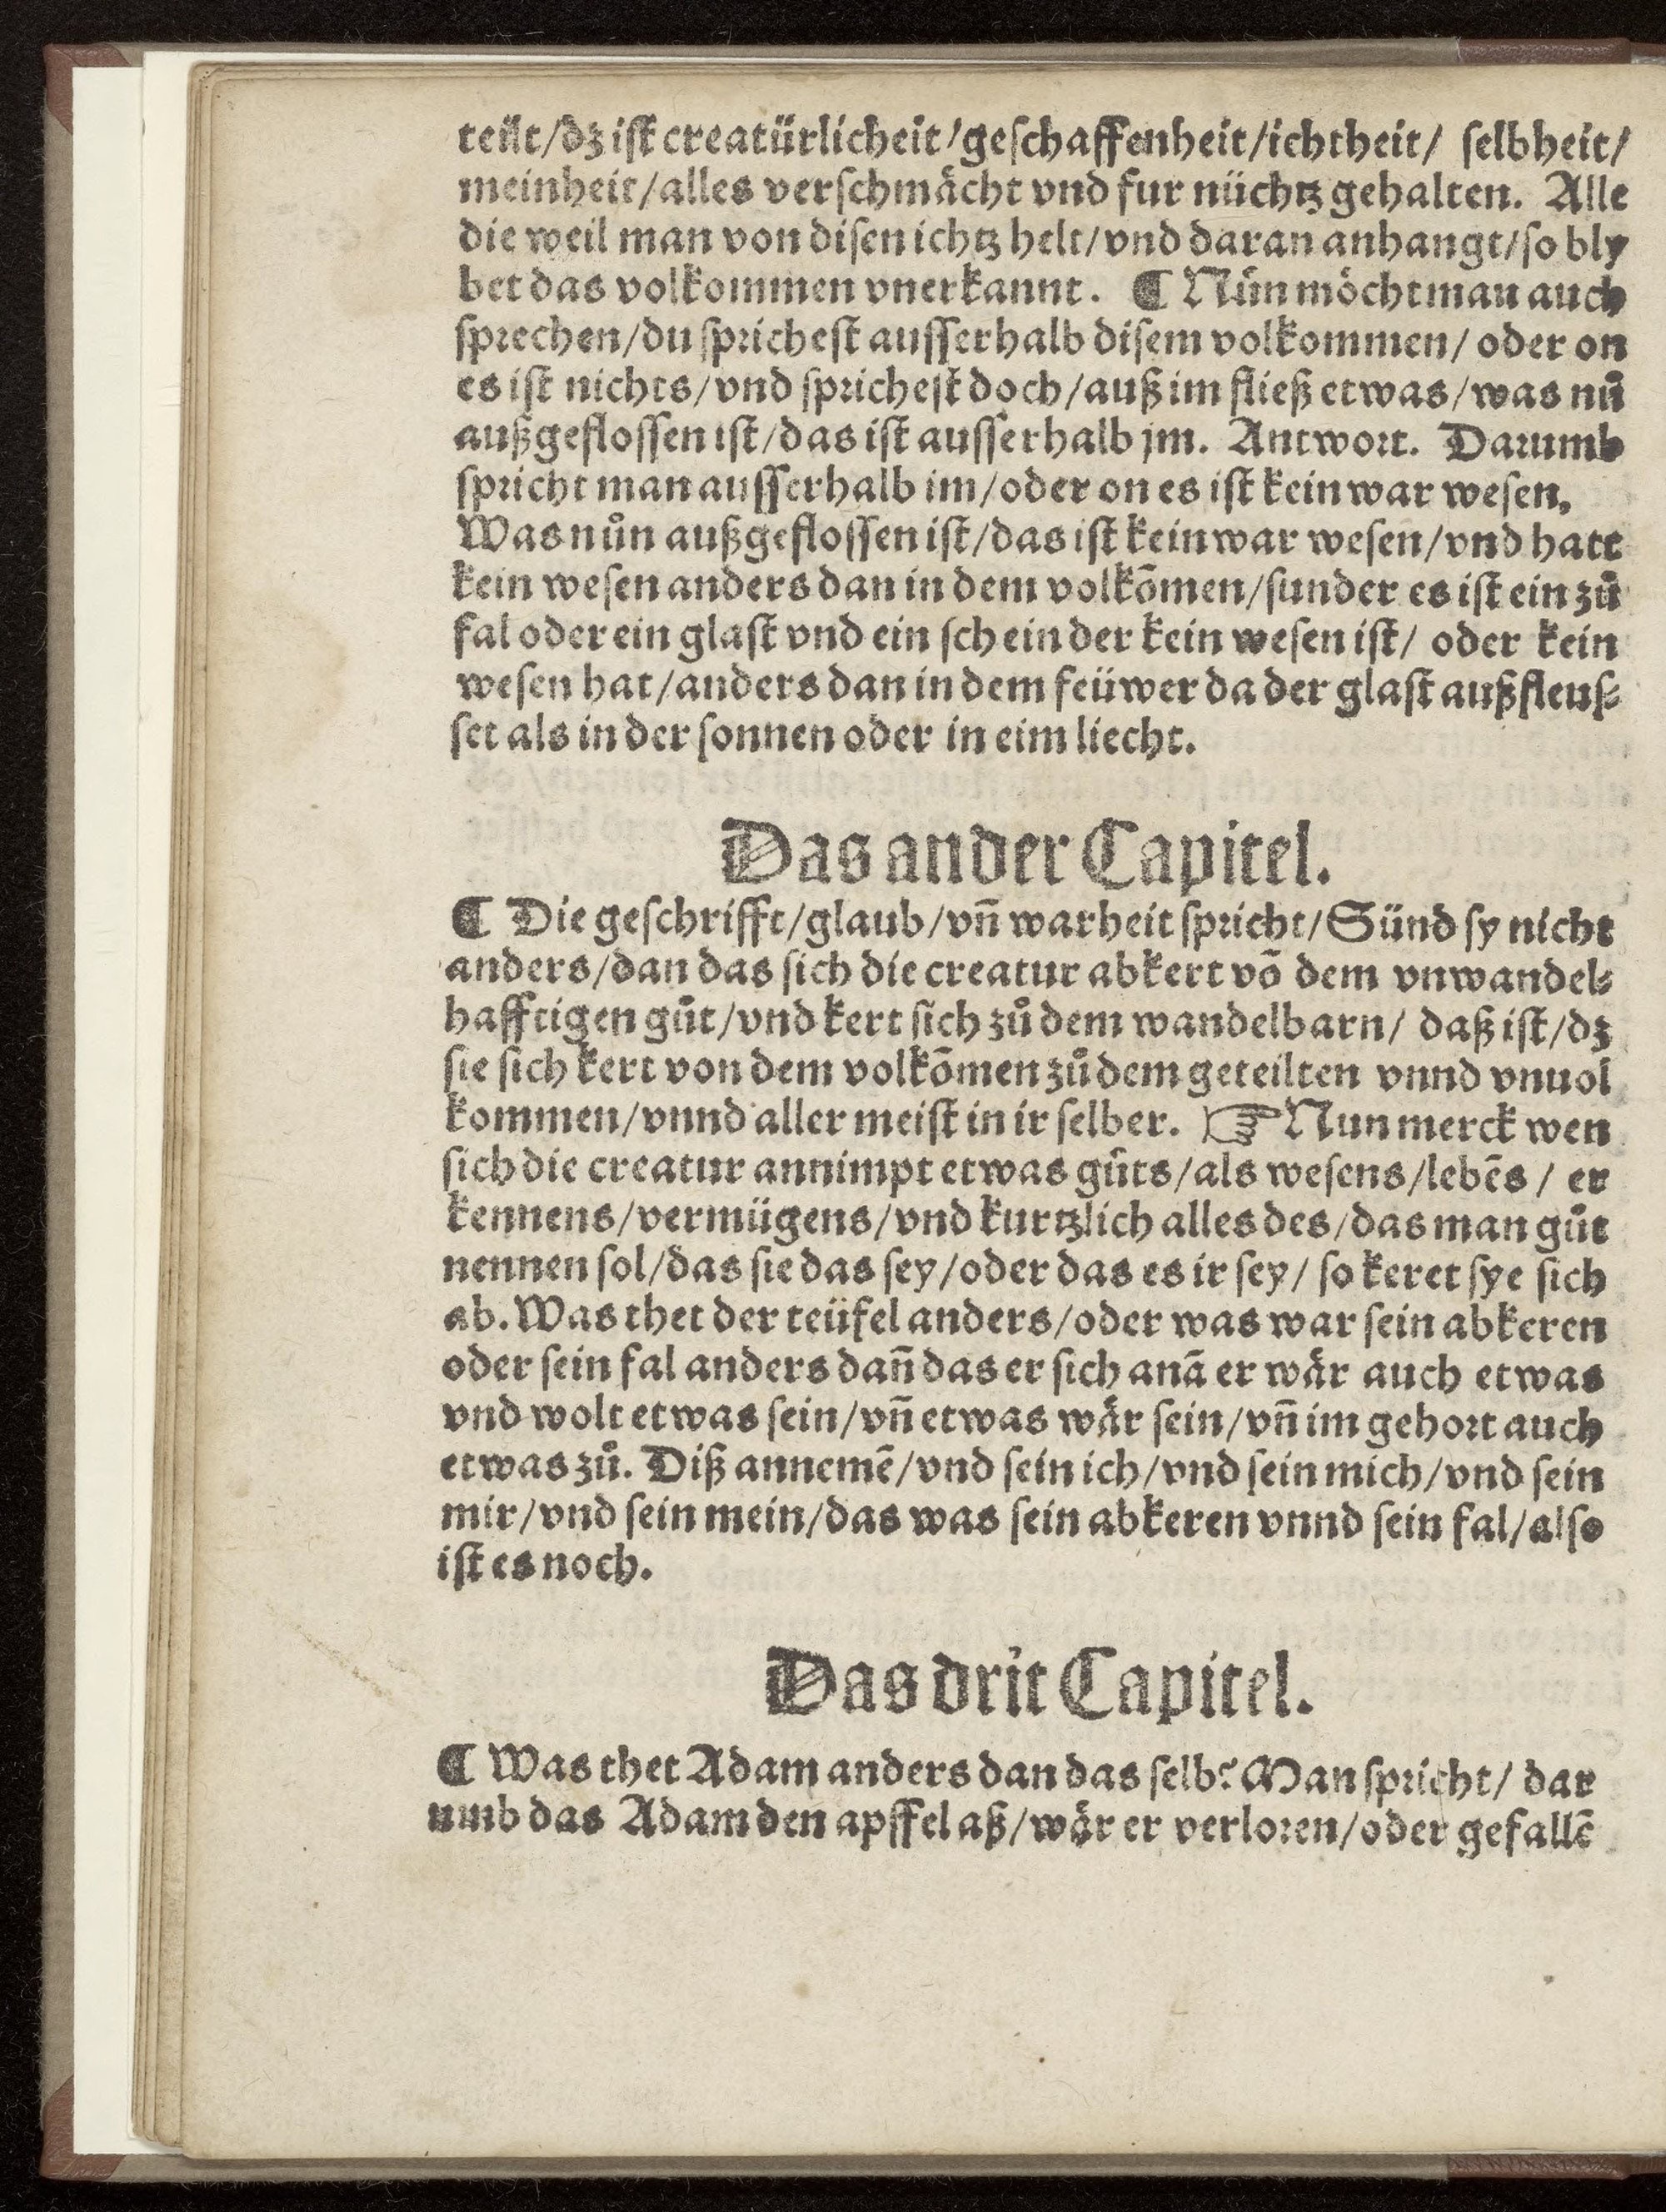 teilt/dꝫ iſt creatürlicheit/geſchaffenheit/ichtheit/ ſelbheit/
meinheit/alles verſchmaͤcht vnd fur nüchtz gehalten. Alle
die weil man von diſen ichtz helt/vnd daran anhangt/ſo bly
bet das volkommen vnerkannt. ¶ Nůn moͤcht man auch
ſprechen/du ſpricheſt auſſerhalb diſem volkommen/ oder on
es iſt nichts/vnd ſpricheſt doch/auß im fließ etwas/was nů
außgefloſſen iſt/das iſt auſſerhalb jm. Antwort. Darumb
ſpricht man auſſerhalb im/oder on es iſt kein war weſen.
Was nůn außgefloſſen iſt/das iſt kein war weſen/vnd hatt
kein weſen anders dan in dem volkōmen/ſunder es iſt ein zů
fal oder ein glaſt vnd ein ſchein der kein weſen iſt/ oder kein
weſen hat/anders dan in dem feüwer da der glaſt außfleuſ⸗
ſet als in der ſonnen oder in eim liecht.
Das ander Capitel.
¶ Die geſchrifft/glaub/vñ warheit ſpricht/Sünd ſy nicht
anders/dan das ſich die creatur abkert vō dem vnwandel⸗
hafftigen gůt/vnd kert ſich zů dem wandelbarn/ daß iſt/dꝫ
ſie ſich kert von dem volkōmen zů dem geteilten vnnd vnuol
kommen/vnnd aller meiſt in ir ſelber. ☞ Nun merck wen
ſich die creatur annimpt etwas gůts/als weſens/lebēs/ er
kennens/vermügens/vnd kurtzlich alles des/das man gůt
nennen ſol/das ſie das ſey/oder das es ir ſey/ ſo keret ſye ſich
ab. Was thet der teüfel anders/oder was war ſein abkeren
oder ſein fal anders dañ das er ſich anā er waͤr auch etwas
vnd wolt etwas ſein/vñ etwas waͤr ſein/vñ im gehort auch
etwas zů. Diß annemē/vnd ſein ich/vnd ſein mich/vnd ſein
mir/vnd ſein mein/das was ſein abkeren vnnd ſein fal/alſo
iſt es noch.
Das drit Capitel.
¶ Was thet Adam anders dan das ſelb? Man ſpricht/ dar
umb das Adam den apffel aß/waͤr er verloren/oder gefallē